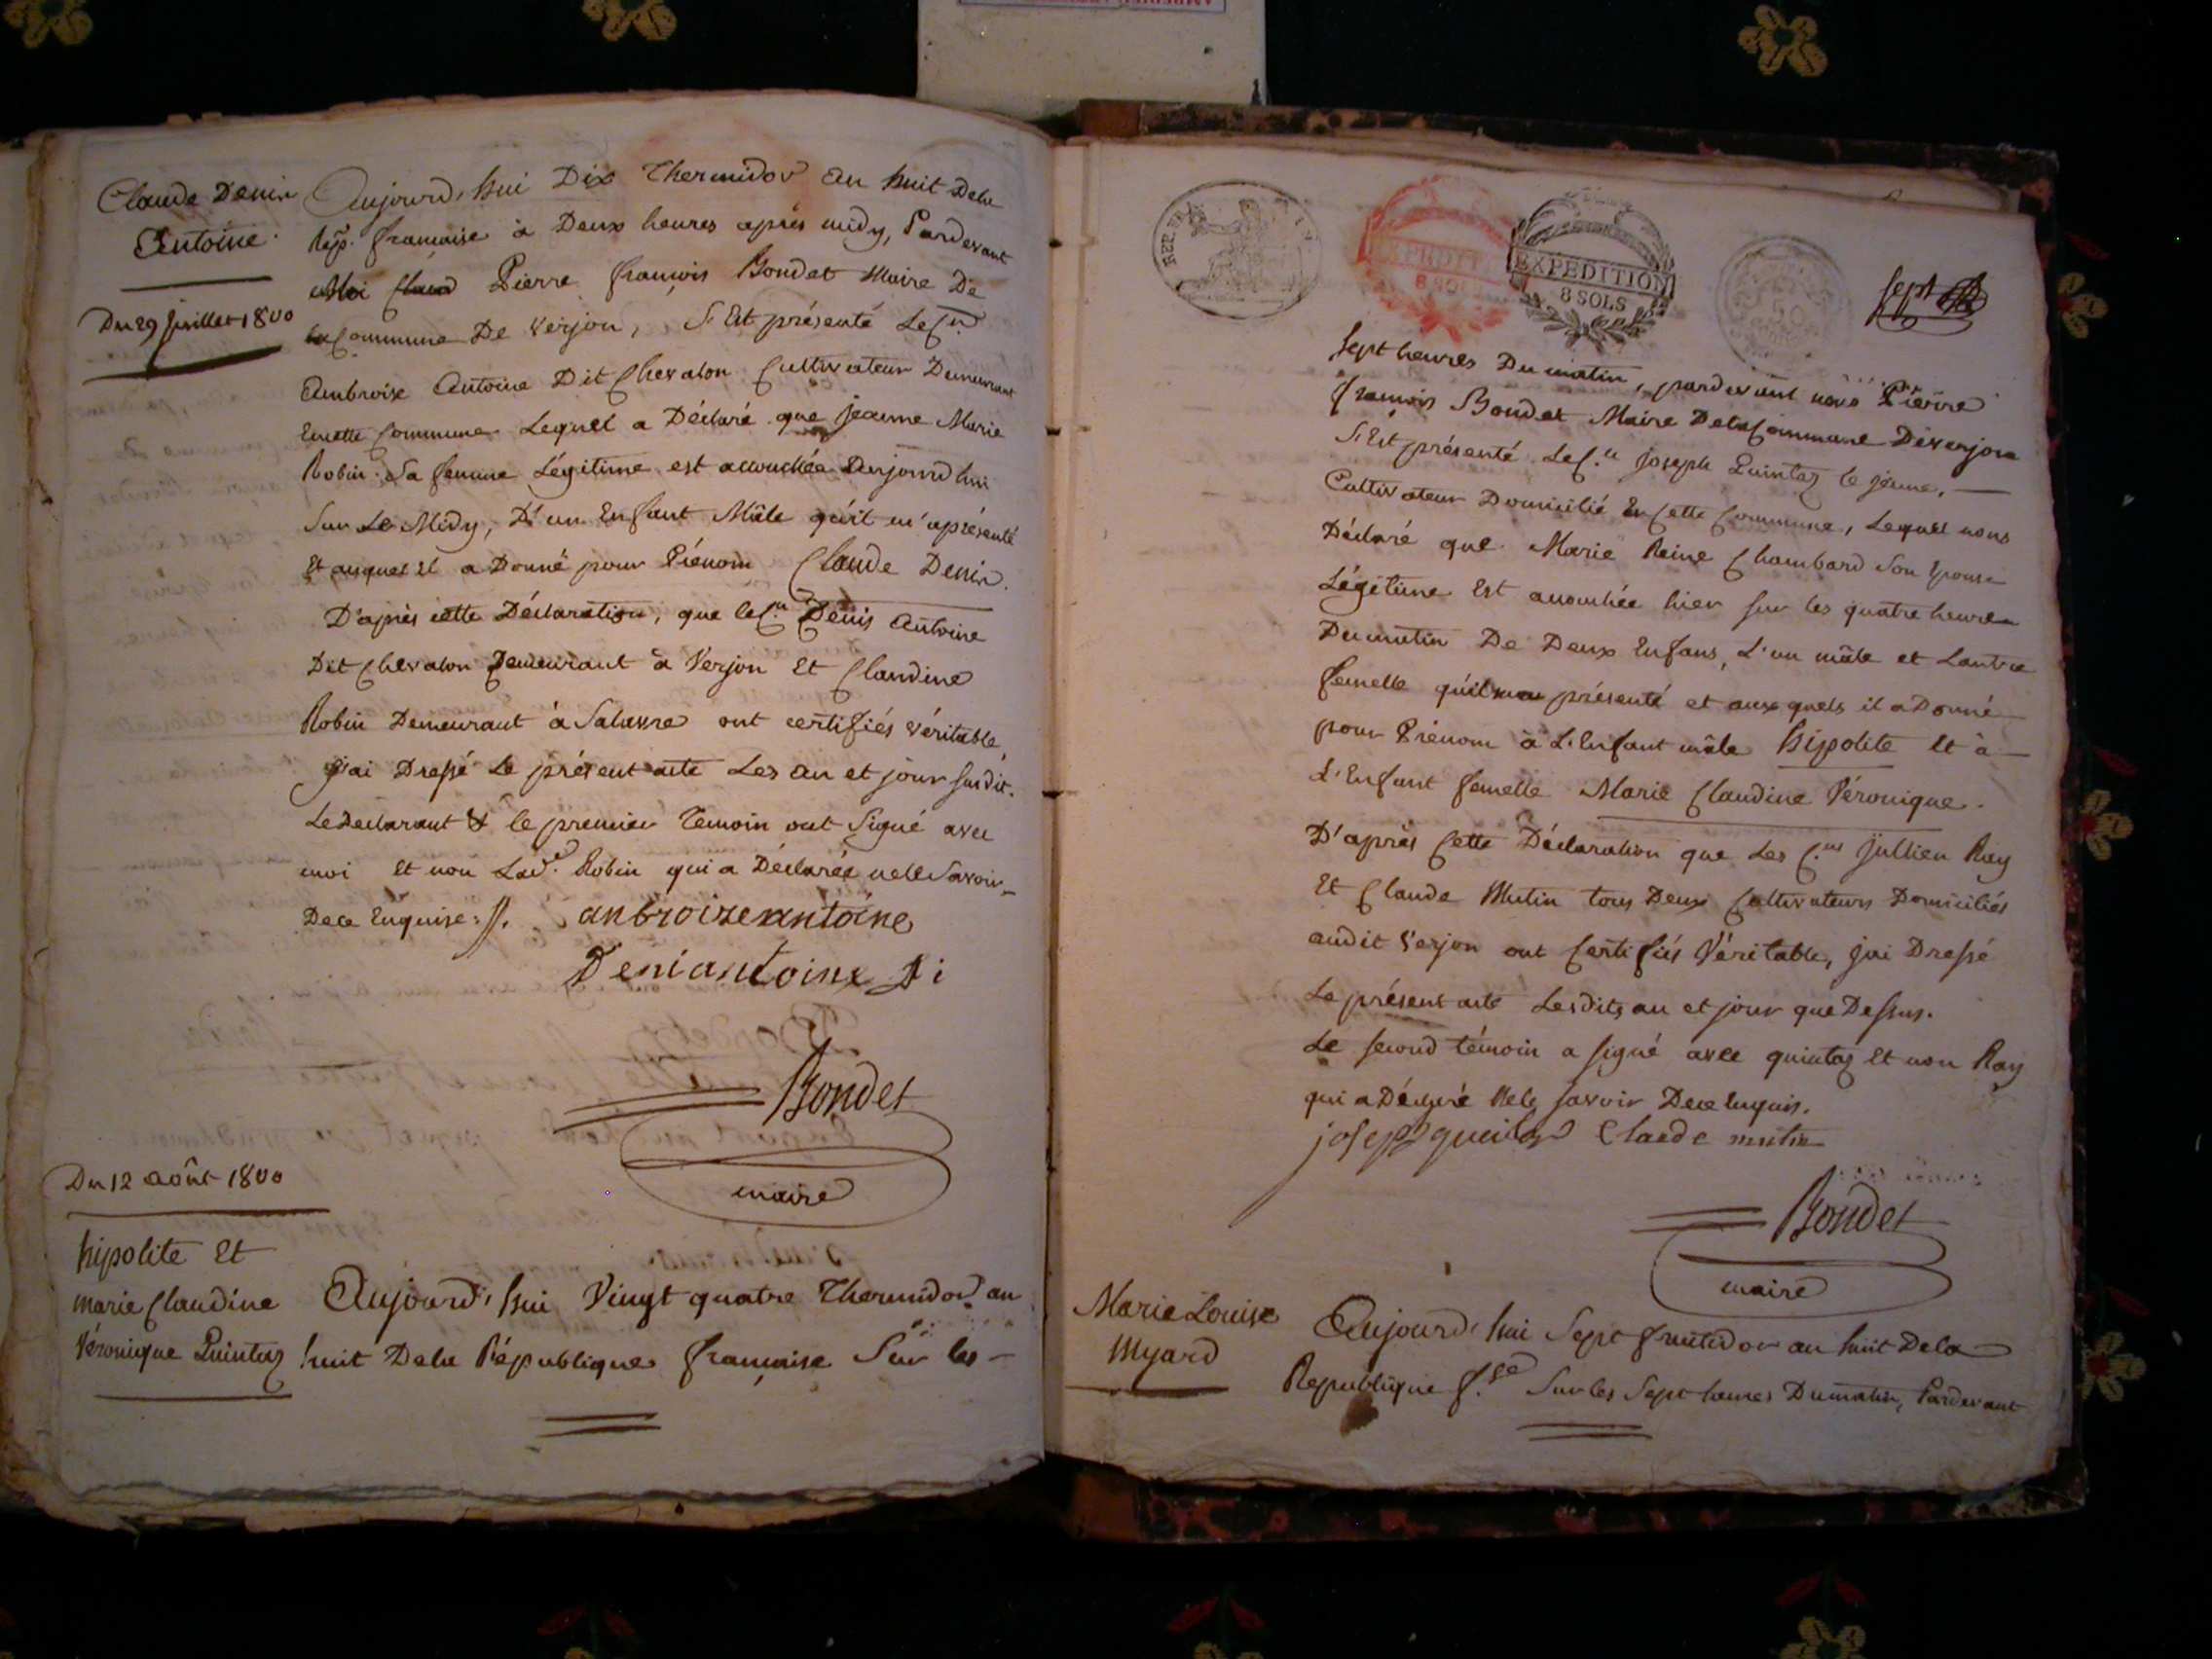 Claude Denis
Antoine
Du 29 juillet 1800
Aujourd'hui Dix Thermidor an huit Dela
Rép. francaise à Deux heures après midy, Pardevant
Moi Pierre françois Bondet Maire De
la Commune De Verjon, S'Est présenté Le C.n
Ambroise Antoine Dit Chevalon Cultivateur Demeurant
En cette Commune Lequel a Déclaré que jeanne Marie
Robin Sa femme Légitime est accouchée Aujourd'hui
Sur Le Midy, D'un Enfant Mâle qu'il m'a présenté
Et auquel il a Donné pour Prénom Claude Denis.
D'après cette Déclaration, que le C.n Denis Antoine
Dit Chevalon Demeurant à Verjon Et Claudine
Robin Demeurant à Salavre ont certifiés véritable,
j'ai Dressé Le présent acte Les an et jour susdit.
Le Déclarant & le premier Témoin ont Signé avec
moi Et non Lad.e Robin qui a Déclarée ne le Savoir
De ce Enquise.
anbroize antoine
Deni antoine Di
Bondet
maire
Du 12 août 1800
hipolite Et
marie Claudine
Véronique Quintaz
Aujourd'hui Vingt quatre Thermidor an
huit Dela République française Sur les
REP. FRA
EXPEDIT
8 SOLS
EXPEDITION
8 SOLS
50
sept
Sept heures Du matin, pardevant nous Pierre
françois Bondet Maire Dela Commune De verjon
S'Est présenté Le C.n joseph Quintaz le jeune,
Cultivateur Domicilié En Cette Commune, Lequel nous
Déclaré que Marie Reine Chambard Son Epouse
Légitime Est accouchée hier sur les quatre heures
Du matin De Deux Enfans, L'un mâle et Lautre
femelle qu'il présenté et aux quels il a Donné
pour Prénom à L'Enfant mâle hipolite Et à
L'Enfant femelle Marie Claudine Véronique.
D'après Cette Déclaration que Les C.ns Jullien Ray
Et Claude Mutin tous Deux Cultivateurs Domiciliés
audit Verjon ont Certifiés Véritable, j'ai Dressé
Le présent acte Lesdits an et jour que Dessus.
Le second témoin a signé avec quintaz Et non Ray
qui a Déclaré Ne le savoir De ce Enquis.
joseph Claude mutin
Bondet
maire
Marie Louise
Myard
Aujourd'hui Sept fructidor an huit Dela
République f.se Sur les Sept heures Du matin, Pardevant